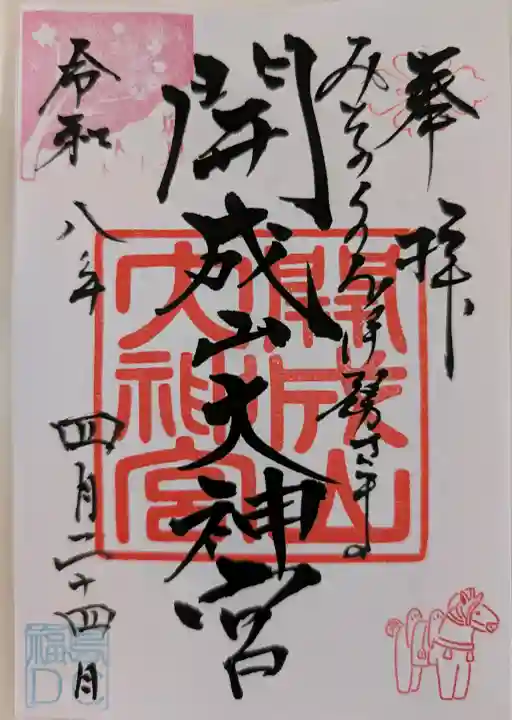 奉拝
みちのくのお伊勢さま
開成山大神宮
開成山
大神宮
令和八年 四月二十四日
福島
DC